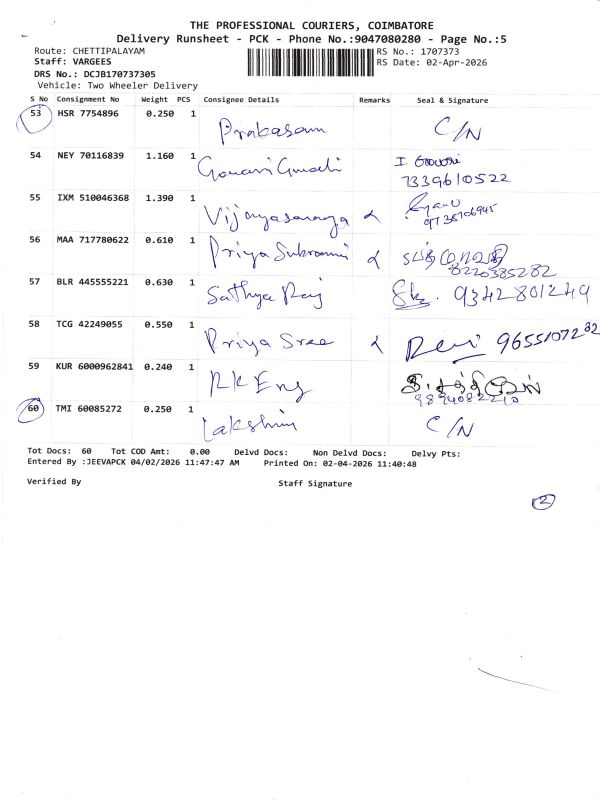 THE PROFESSIONAL COURIERS, COIMBATORE
Delivery Runsheet - PCK - Phone No.:9047080280 - Page No.:5
Route: CHETTIPALAYAM RS No.: 1707373
Staff: VARGEES RS Date: 02-Apr-2026
DRS No.: DCJB170737305
Vehicle: Two Wheeler Delivery
S No Consignment No Weight PCS Consignee Details Remarks Seal & Signature
53 HSR 7754896 0.250 1
Prabasam C/N
54 NEY 70116839 1.160 1
Gowri
7339610522
55 IXM 510046368 1.390 1
Vijayasaranya
56 MAA 717780622 0.610 1
Priya
8220385282
57 BLR 445555221 0.630 1
Sathya Raj Sk. 9342801249
58 TCG 42249055 0.550 1
Priya Sree Devi 9655107232
59 KUR 6000962841 0.240 1
RK Eng
60 TMI 60085272 0.250 1
Lakshmi C/N
Tot Docs: 60 Tot COD Amt: 0.00 Delvd Docs: Non Delvd Docs: Delvy Pts:
Entered By :JEEVAPCK 04/02/2026 11:47:47 AM Printed On: 02-04-2026 11:40:48
Verified By Staff Signature
2